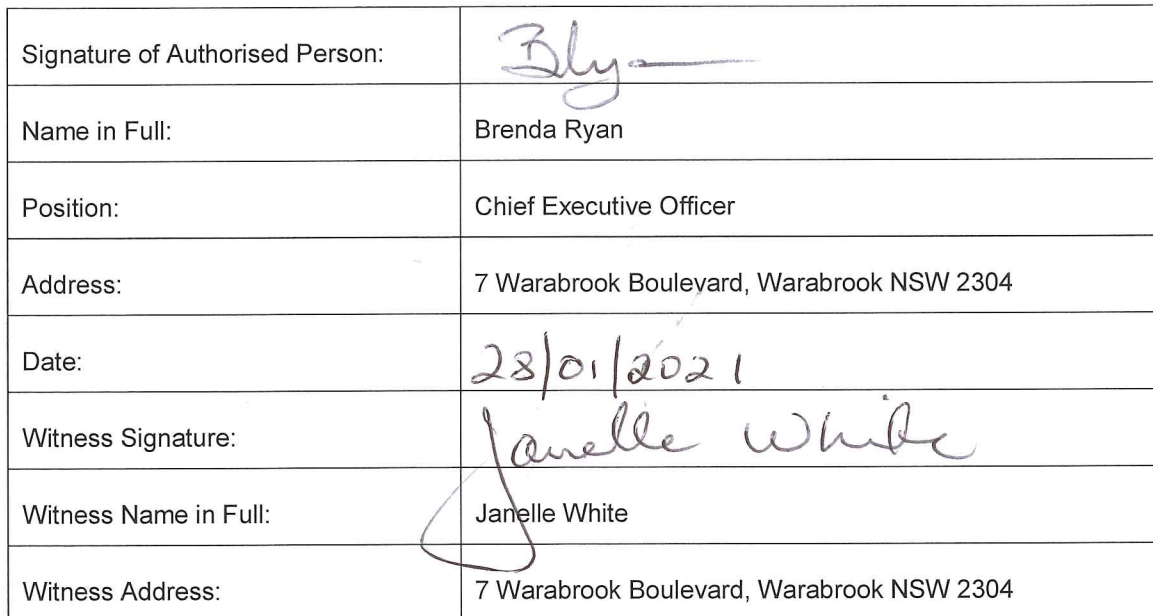 Signature of Authorised Person:
Name in Full: Brenda Ryan
Position: Chief Executive Officer
Address: 7 Warabrook Boulevard, Warabrook NSW 2304
Date: 28/01/2021
Witness Signature: Janelle White
Witness Name in Full: Janelle White
Witness Address: 7 Warabrook Boulevard, Warabrook NSW 2304